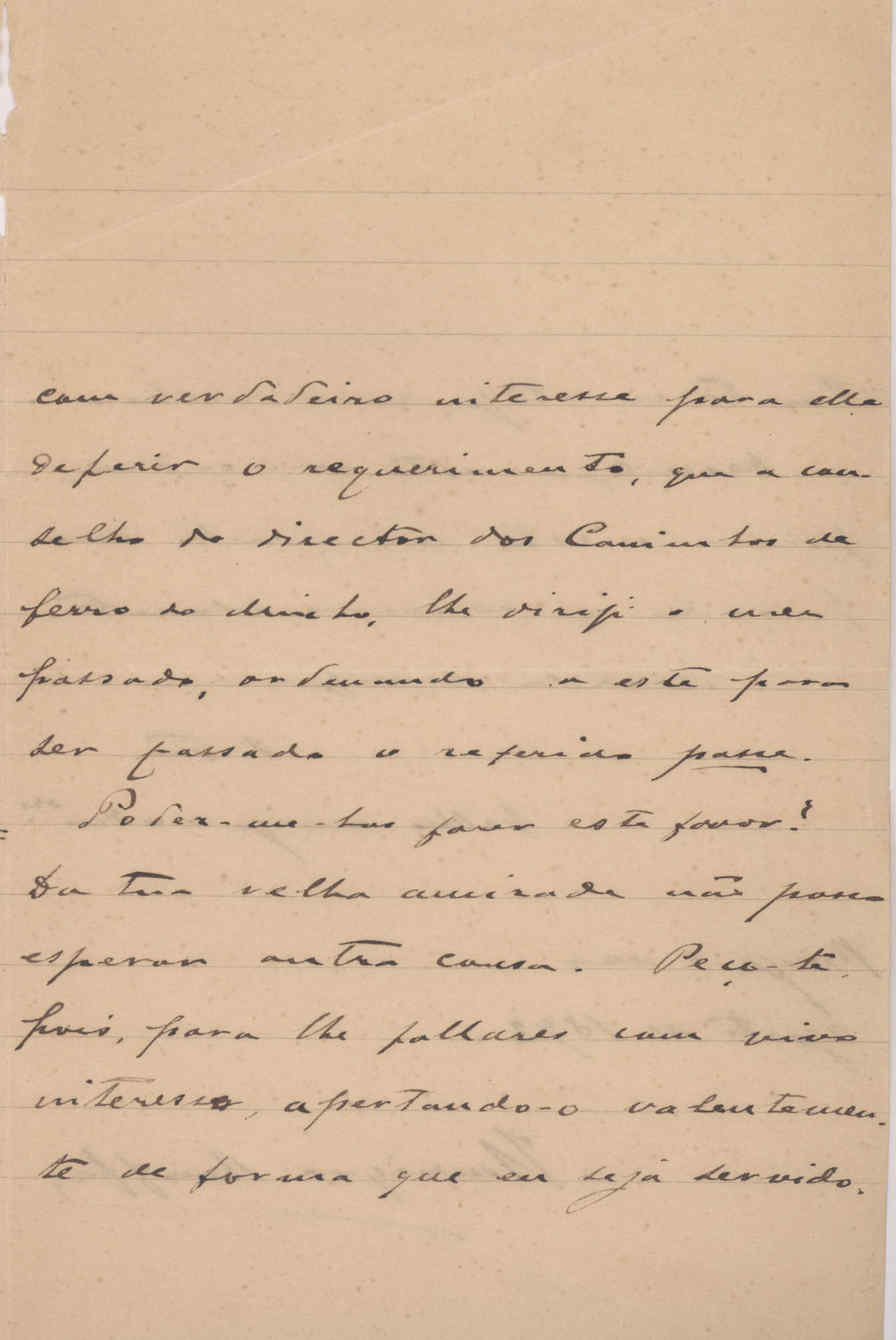 com verdadeiro interesse para elle
deferir o requerimento, que a con-
selho do director dos Caminhos de
ferro do Minho, lhe dirijí o mez
passado, ordenando a este para
ser passado o referido passe.
Poder-me-has fazer este favor?
Da tua velha amizade não posso
esperar outra cousa. Peço-te,
pois, para lhe fallares com vivo
interesse, apertando-o valentemen-
te de forma que eu seja servido.